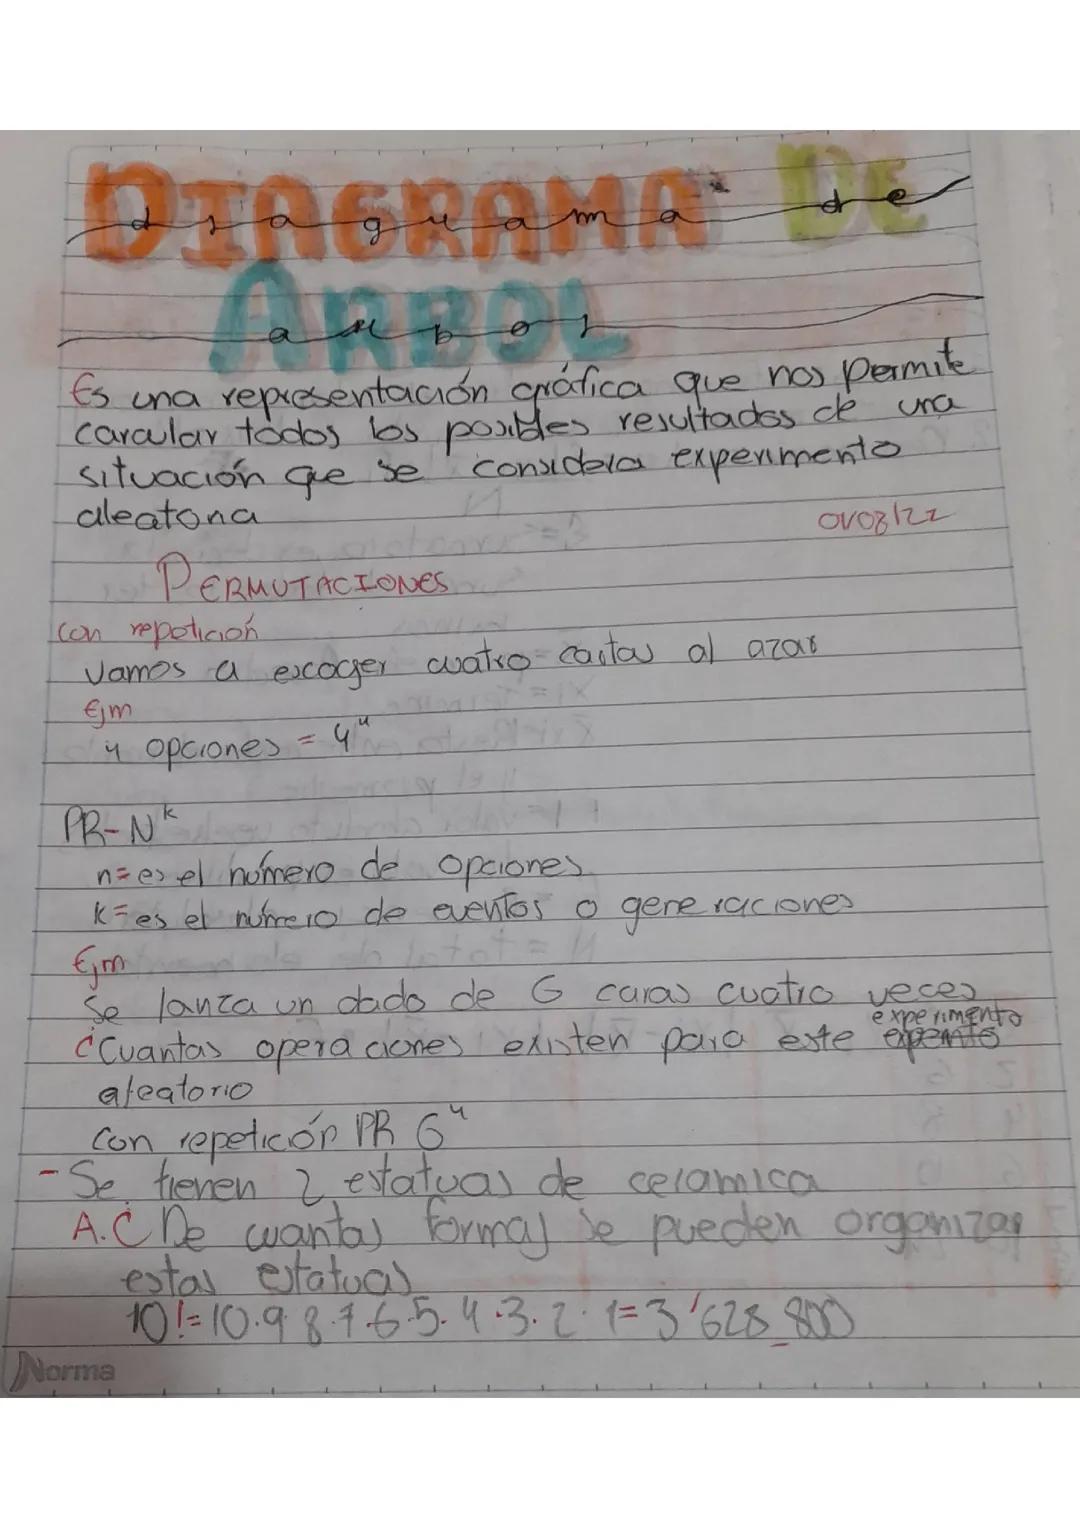 DIAGRAMA DE
diagrama de
ARBOL
arbol
Es una representación gráfica que nos permite
carcular todos los posibles resultados de una
situación que se considera experimento
aleatoria
01/08/22
PERMUTACIONES
con repetición
Vamos a escoger cuatro cartas al azar
Ejm
4 opciones = 4⁴
PR-N^k
n= es el número de opciones
k= es el número de eventos o generaciones
Ejm
Se lanza un dado de 6 caras cuatro veces
experimento
¿Cuantas operaciones existen para este
aleatorio
con repetición PR 6⁴
- Se tienen 2 estatuas de ceramica
A.C De cuantas formas se pueden organizar
estas estatuas
10!=10.9.8.7.6.5.4.3.2.1=3'628_800
Norma